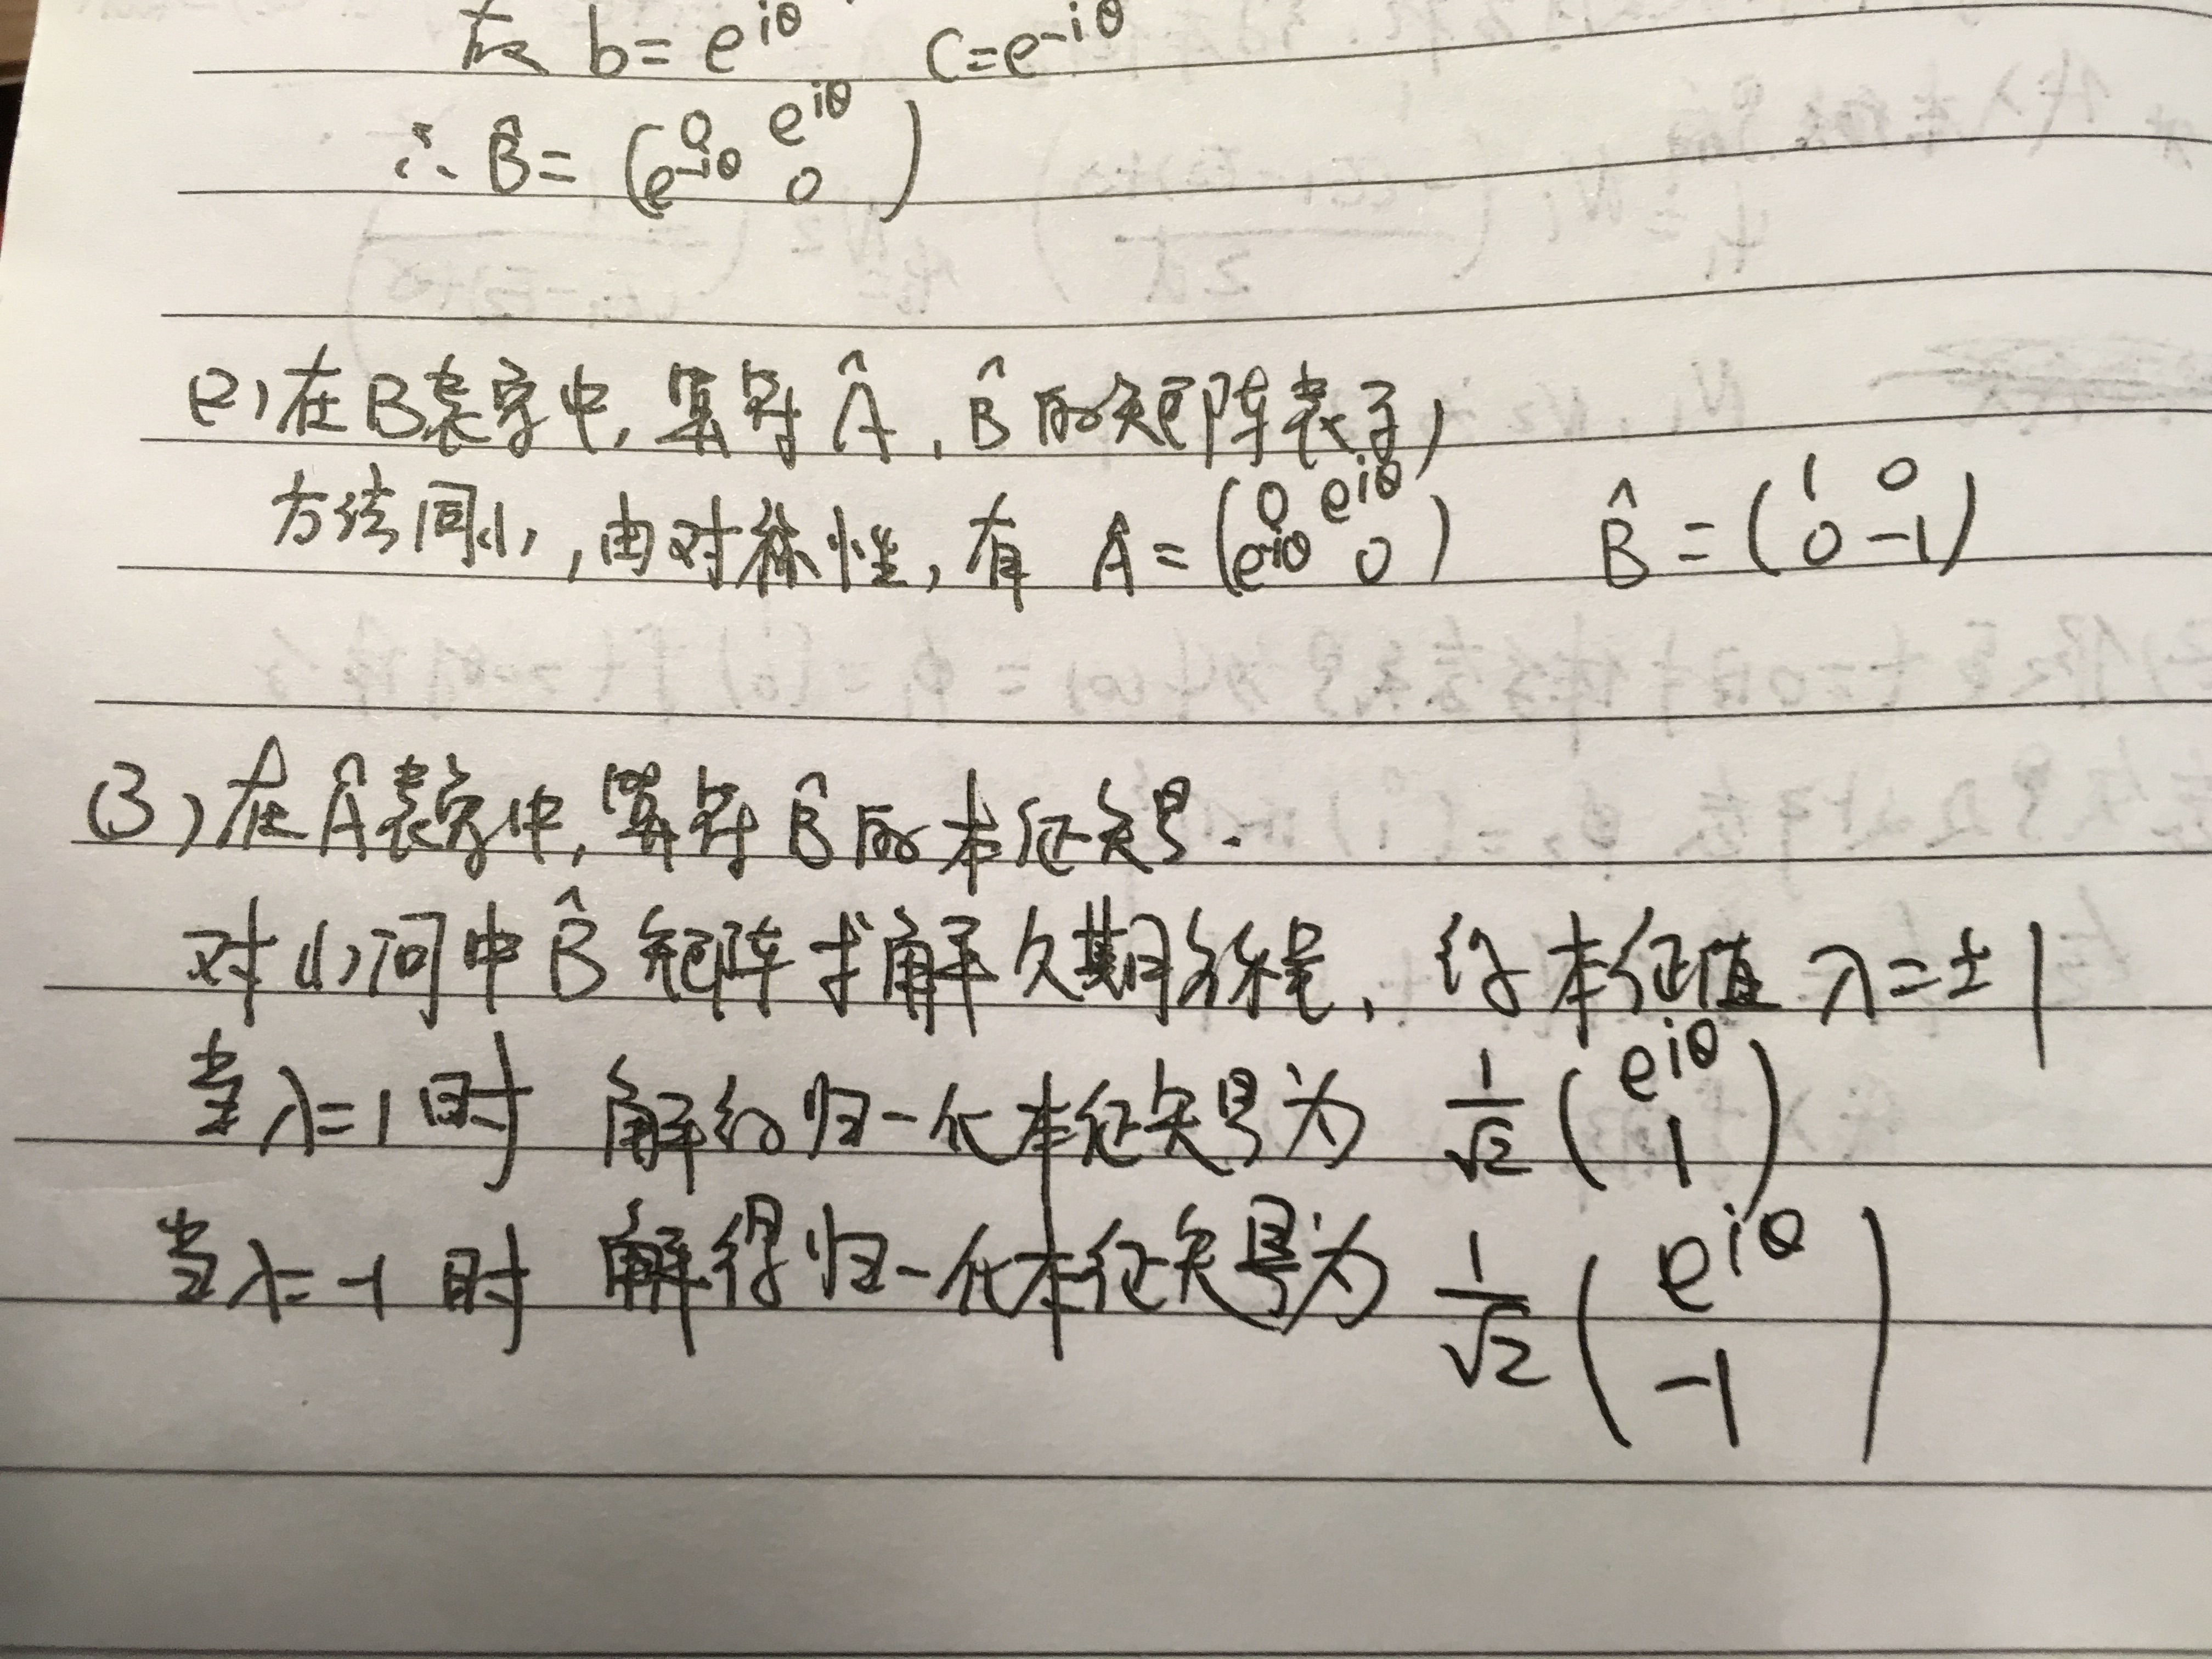 故 b = e^{iθ} c = e^{-iθ}
∴ B̂ = ( 0 e^{iθ} ; e^{-iθ} 0 )
(2) 在B表象中, 算符 Â, B̂ 的矩阵表示,
方法同(1), 由对称性, 有 Â = ( 0 e^{iθ} ; e^{-iθ} 0 ) B̂ = ( 1 0 ; 0 -1 )
(3) 在Â表象中, 算符 B̂ 的本征矢量.
对(1)问中 B̂ 矩阵求解久期方程, 得本征值 λ = ±1
当λ=1时 解得归一化本征矢量为 1/√2 ( e^{iθ} ; 1 )
当λ=-1时 解得归一化本征矢量为 1/√2 ( e^{iθ} ; -1 )